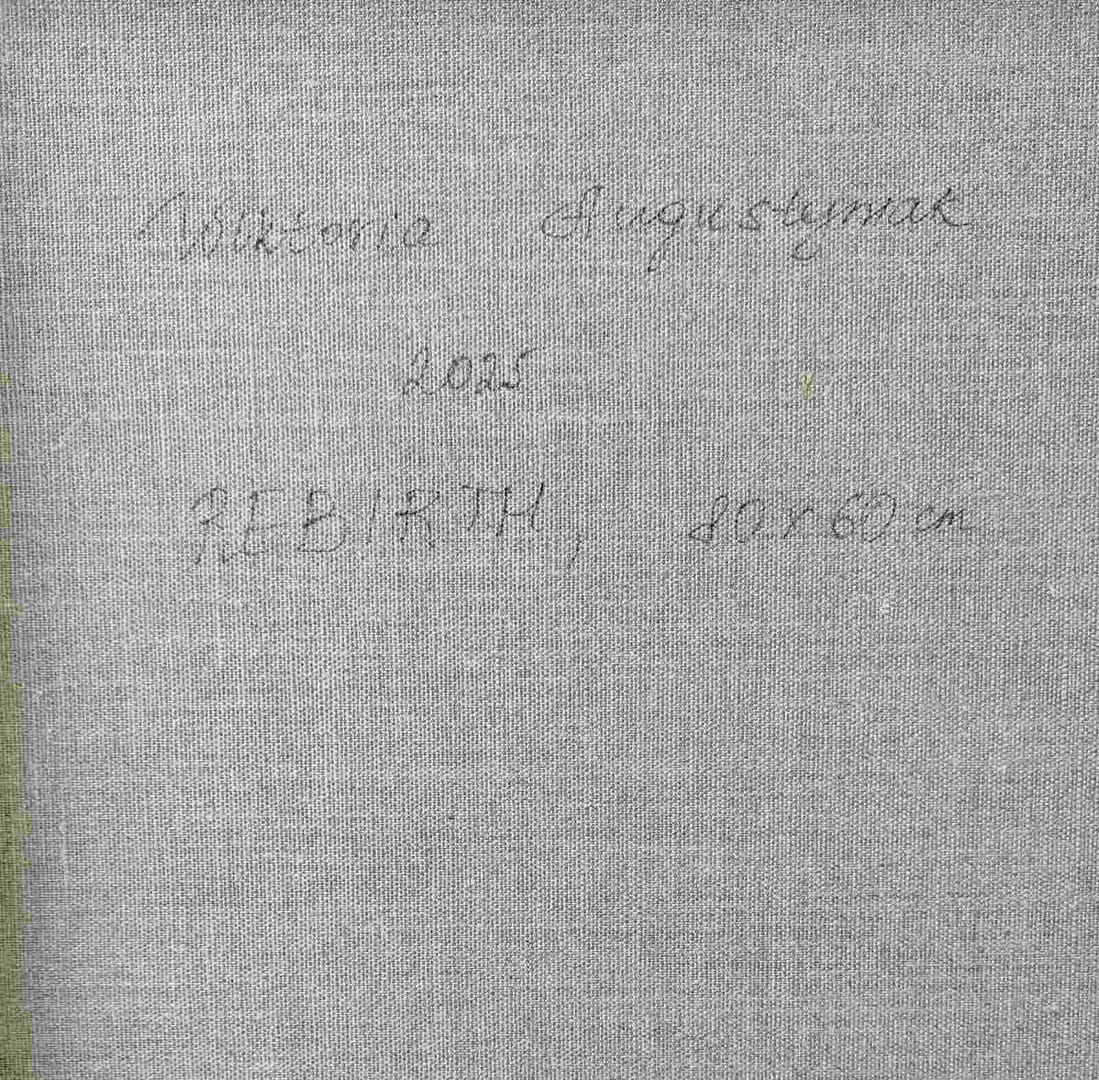 Wiktoria Augustyniak
2025
REBIRTH, 80 x 60 cm